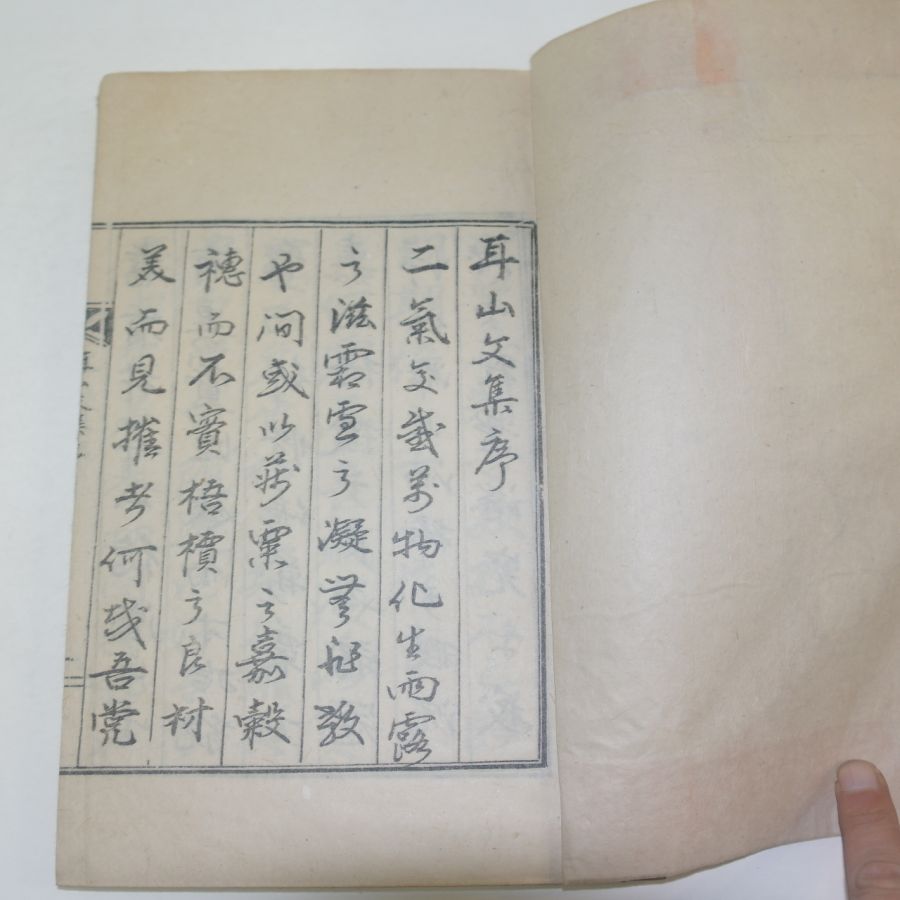 耳山文集序
二氣交感萬物化生雨露
之滋霜雪之凝無非教
也間或以菽粟之嘉穀
穗而不實梧檟之良材
美而見摧者何哉吾党